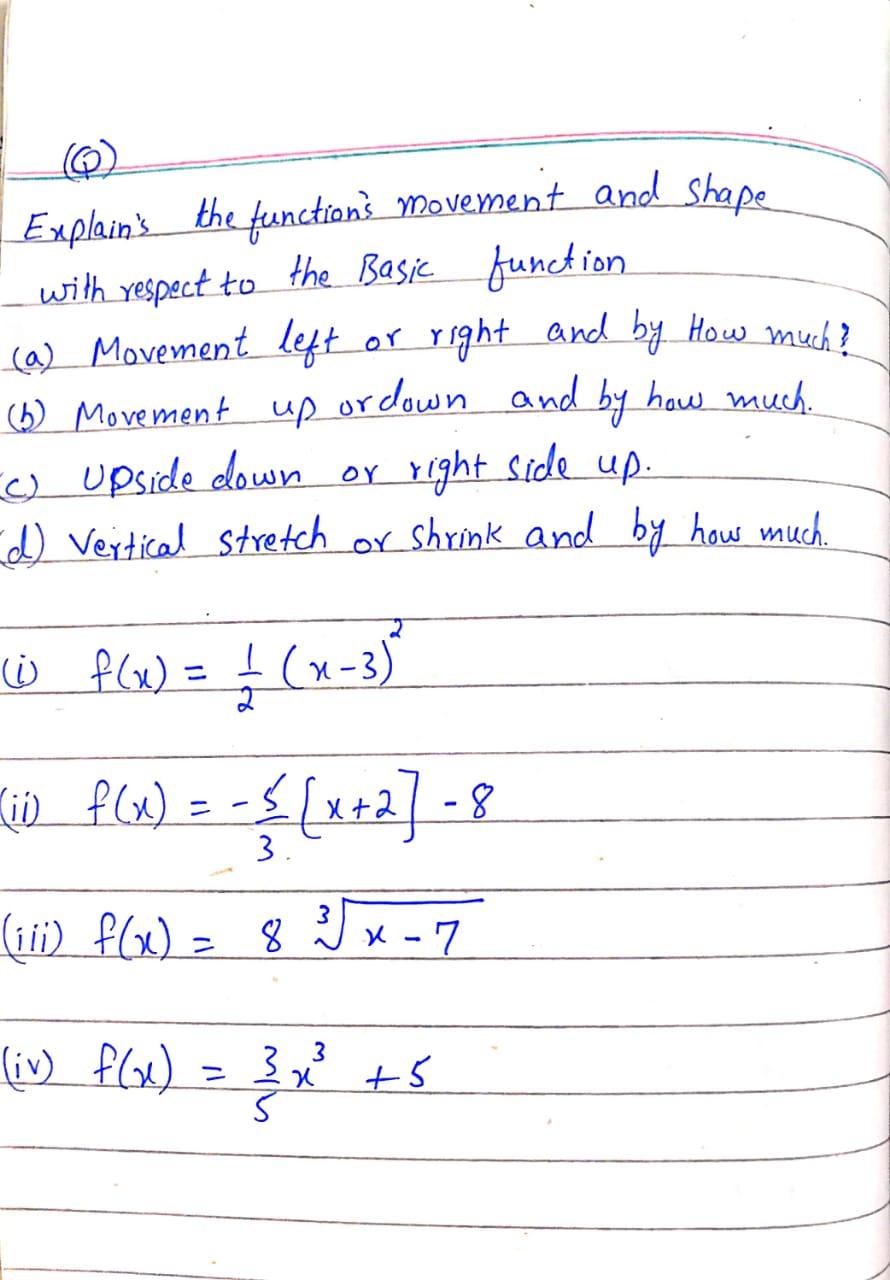 (Q)
Explain's the function's movement and shape
with respect to the Basic function
(a) Movement left or right and by How much?
(b) Movement up or down and by how much.
(c) Upside down or right side up.
(d) Vertical stretch or shrink and by how much.
(i) f(x) = 1/2 (x-3)²
(ii) f(x) = -5/3 [x+2] - 8
(iii) f(x) = 8 ∛(x-7)
(iv) f(x) = 3/5 x³ + 5